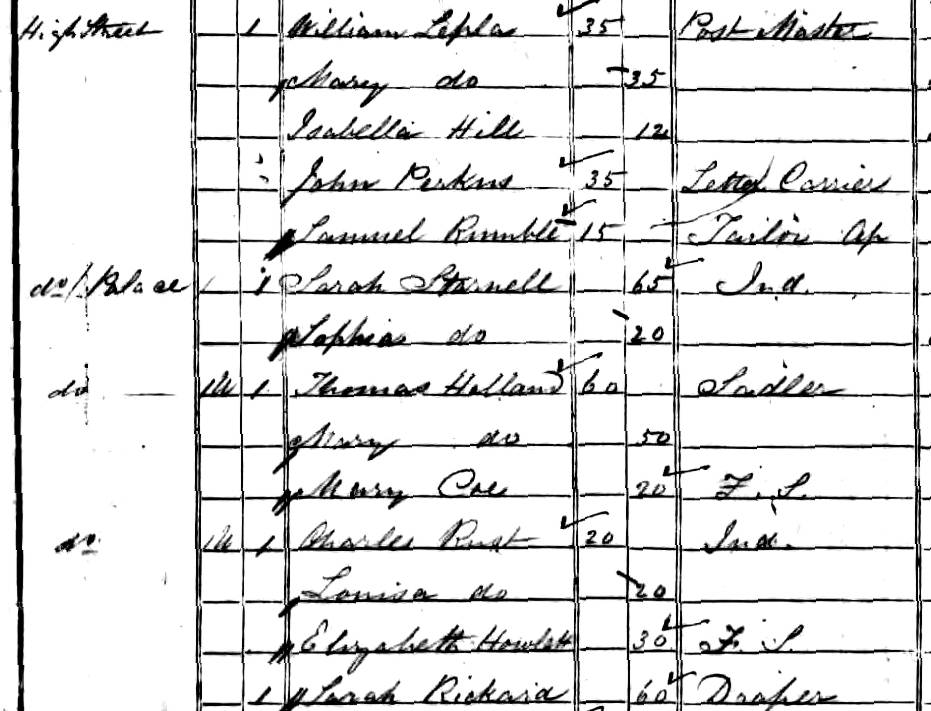 High Street 1 William Lepla 35 Post Master
Mary do 35
Isabella Hill 12
John Perkins 35 Letter Carrier
Samuel Rumble 15 Tailor Ap
do / Palace 1 Sarah Starnell 65 Ind.
Sophia do 20
do 1 Thomas Holland 60 Sadler
Mary do 50
Mary Coe 20 F. S.
do 1 Charles Rust 20 Ind.
Louisa do 20
Elizabeth Howlett 30 F. S.
1 Sarah Rickard 60 Draper